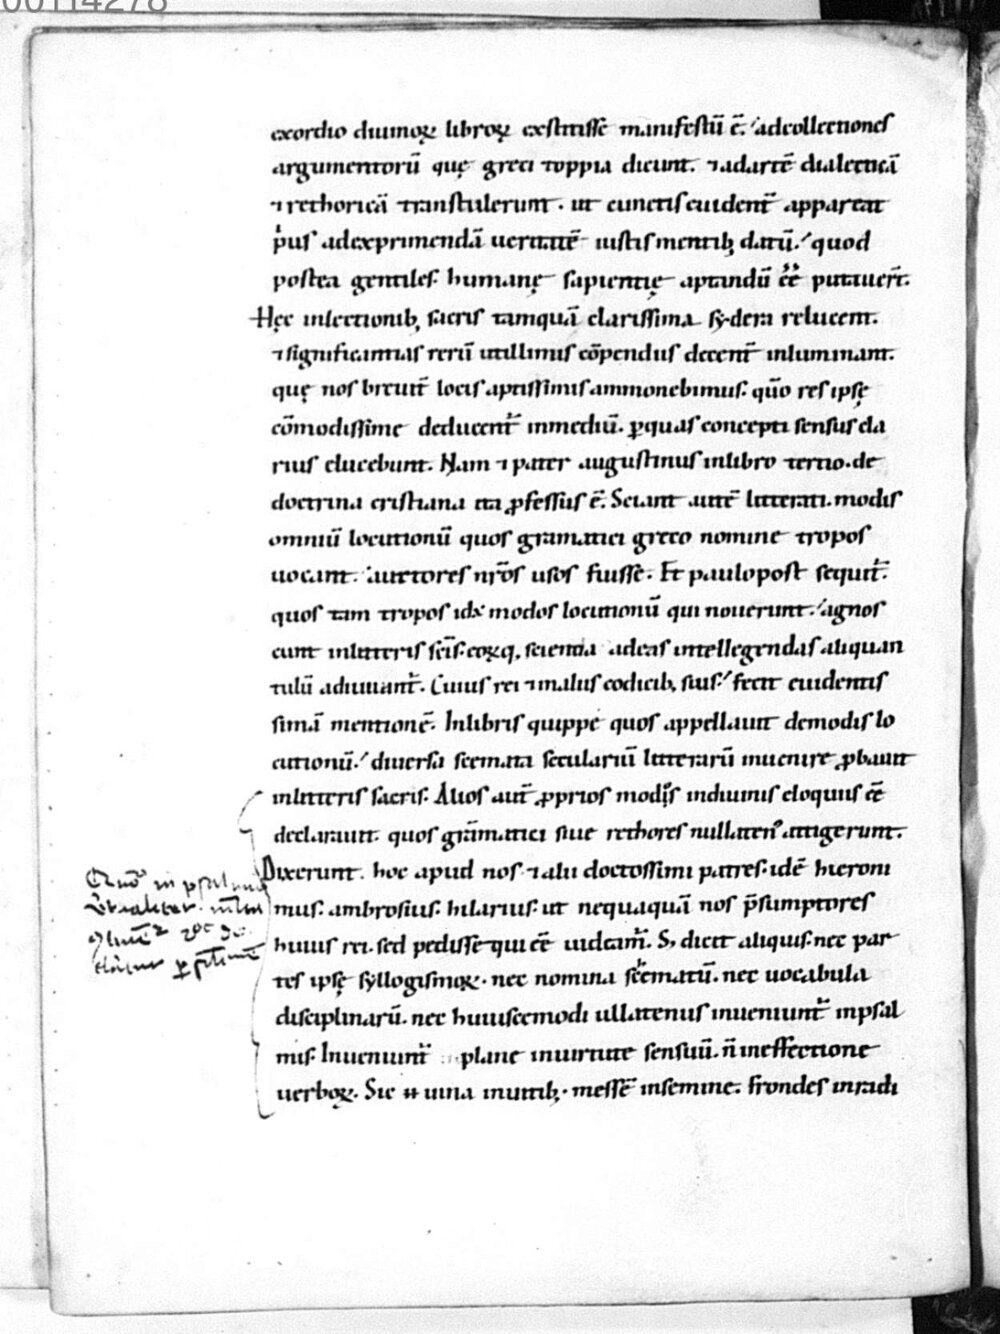 00114278
exordio diuinoꝝ libroꝝ exstitisse manifestū ē. adcollectiones
argumentorū quę greci toppia dicunt. ⁊adartē dialecticā
⁊rethoricā transtulerunt. ut cunctis euident̄ appareat
pͥus adexprimendā ueritatē iustis mentibꝫ datū. quod
postea gentiles humanę sapientię aptandū ēē putauer̄.
Hęc inlectionibꝫ sacris tamquā clarissima sydera relucent.
⁊significantias rerū utillimis cōpendiis decent̄ inluminant.
quę nos breuit̄ locis aptissimis ammonebimus. qūo res ipsę
cōmodissime deducent̄ inmediū. ꝑquas concepti sensus cla
rius elucebunt. Nam ⁊ pater augustinus inlibro tertio de
doctrina cristiana ita ꝓfessus ē. Sciant autē litterati. modis
omniū locutionū quos gramatici greco nomine tropos
uocant. auctores nr̄os usos fuisse. Et paulopost sequit̄.
quos tam tropos idē modos locutionū qui nouerunt. agnos
cunt inlitteris sc̄is. eoꝝqꝫ scientia adeas intellegendas aliquan
tulū adiuuant̄. Cuius rei ⁊inalus codicibꝫ suis fecit euidentis
simā mentionē. Inlibris quippe quos appellauit demodis lo
cutionū. diuersa scemata seculariū litterarū inuenire ꝓbauit
inlitteris sacris. Alios aut̄ ꝓprios modos indiuinis eloquiis ēē
declarauit. quos grāmatici siue rethores nullaten᾽ attigerunt.
Dixerunt hoc apud nos ⁊alii doctossimi patres. idē hieroni
mus. ambrosius. hilarius. ut nequaquā nos p̄sumptores
huius rei. sed pedissequi ēē uideam̄. Sꝫ dicit aliquis. nec par
tes ipsę syllogismoꝝ. nec nomina scematū. nec uocabula
disciplinarū. nec huiuscemodi ullatenus inueniunt̄ inpsal
mis. Inueniunt̄ plane inuirtute sensuū. n̄ ineffectione
uerboꝝ. Sic n̄ uina inuitibꝫ. messē insemine. frondes inradi